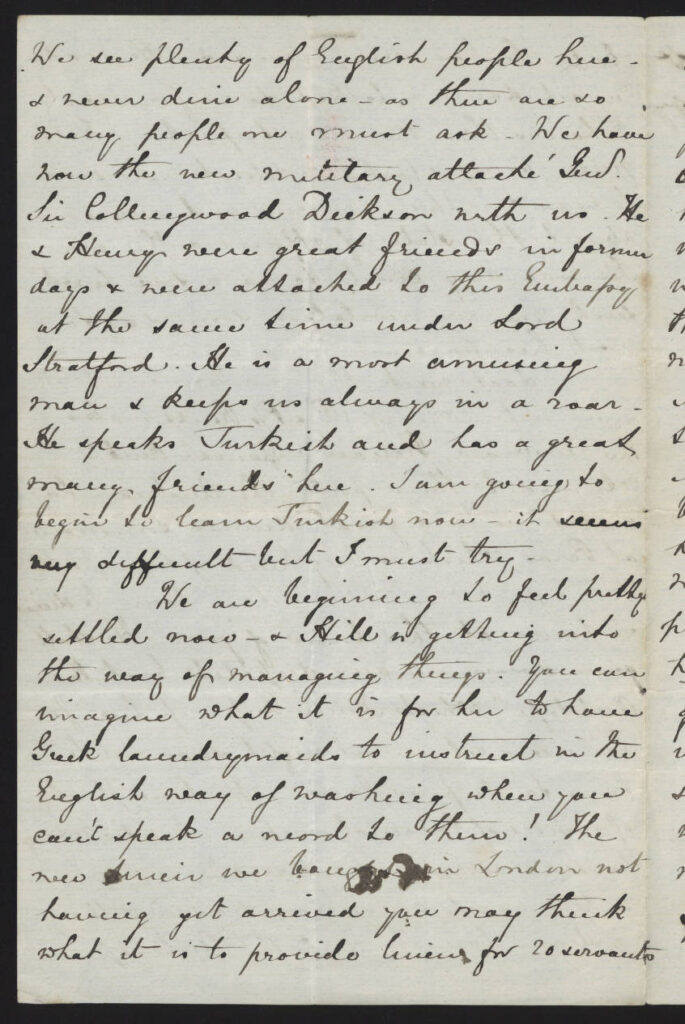 We see plenty of English people here -
& never dine alone - as there are so
many people one must ask - We have
now the new military attaché Genl.
Sir Collingwood Dickson with us. He
& Henry were great friends in former
days & were attached to this Embassy
at the same time under Lord
Stratford. He is a most amusing
man & keeps us always in a roar -
He speaks Turkish and has a great
many friends here. I am going to
begin to learn Turkish now - it seems
very difficult but I must try -
We are beginning to feel pretty
settled now - & Hill is getting into
the way of managing things. You can
imagine what it is for her to have
Greek laundrymaids to instruct in the
English way of washing when you
can't speak a word to them! The
new linen we bought in London not
having yet arrived you may think
what it is to provide linen for 20 servants